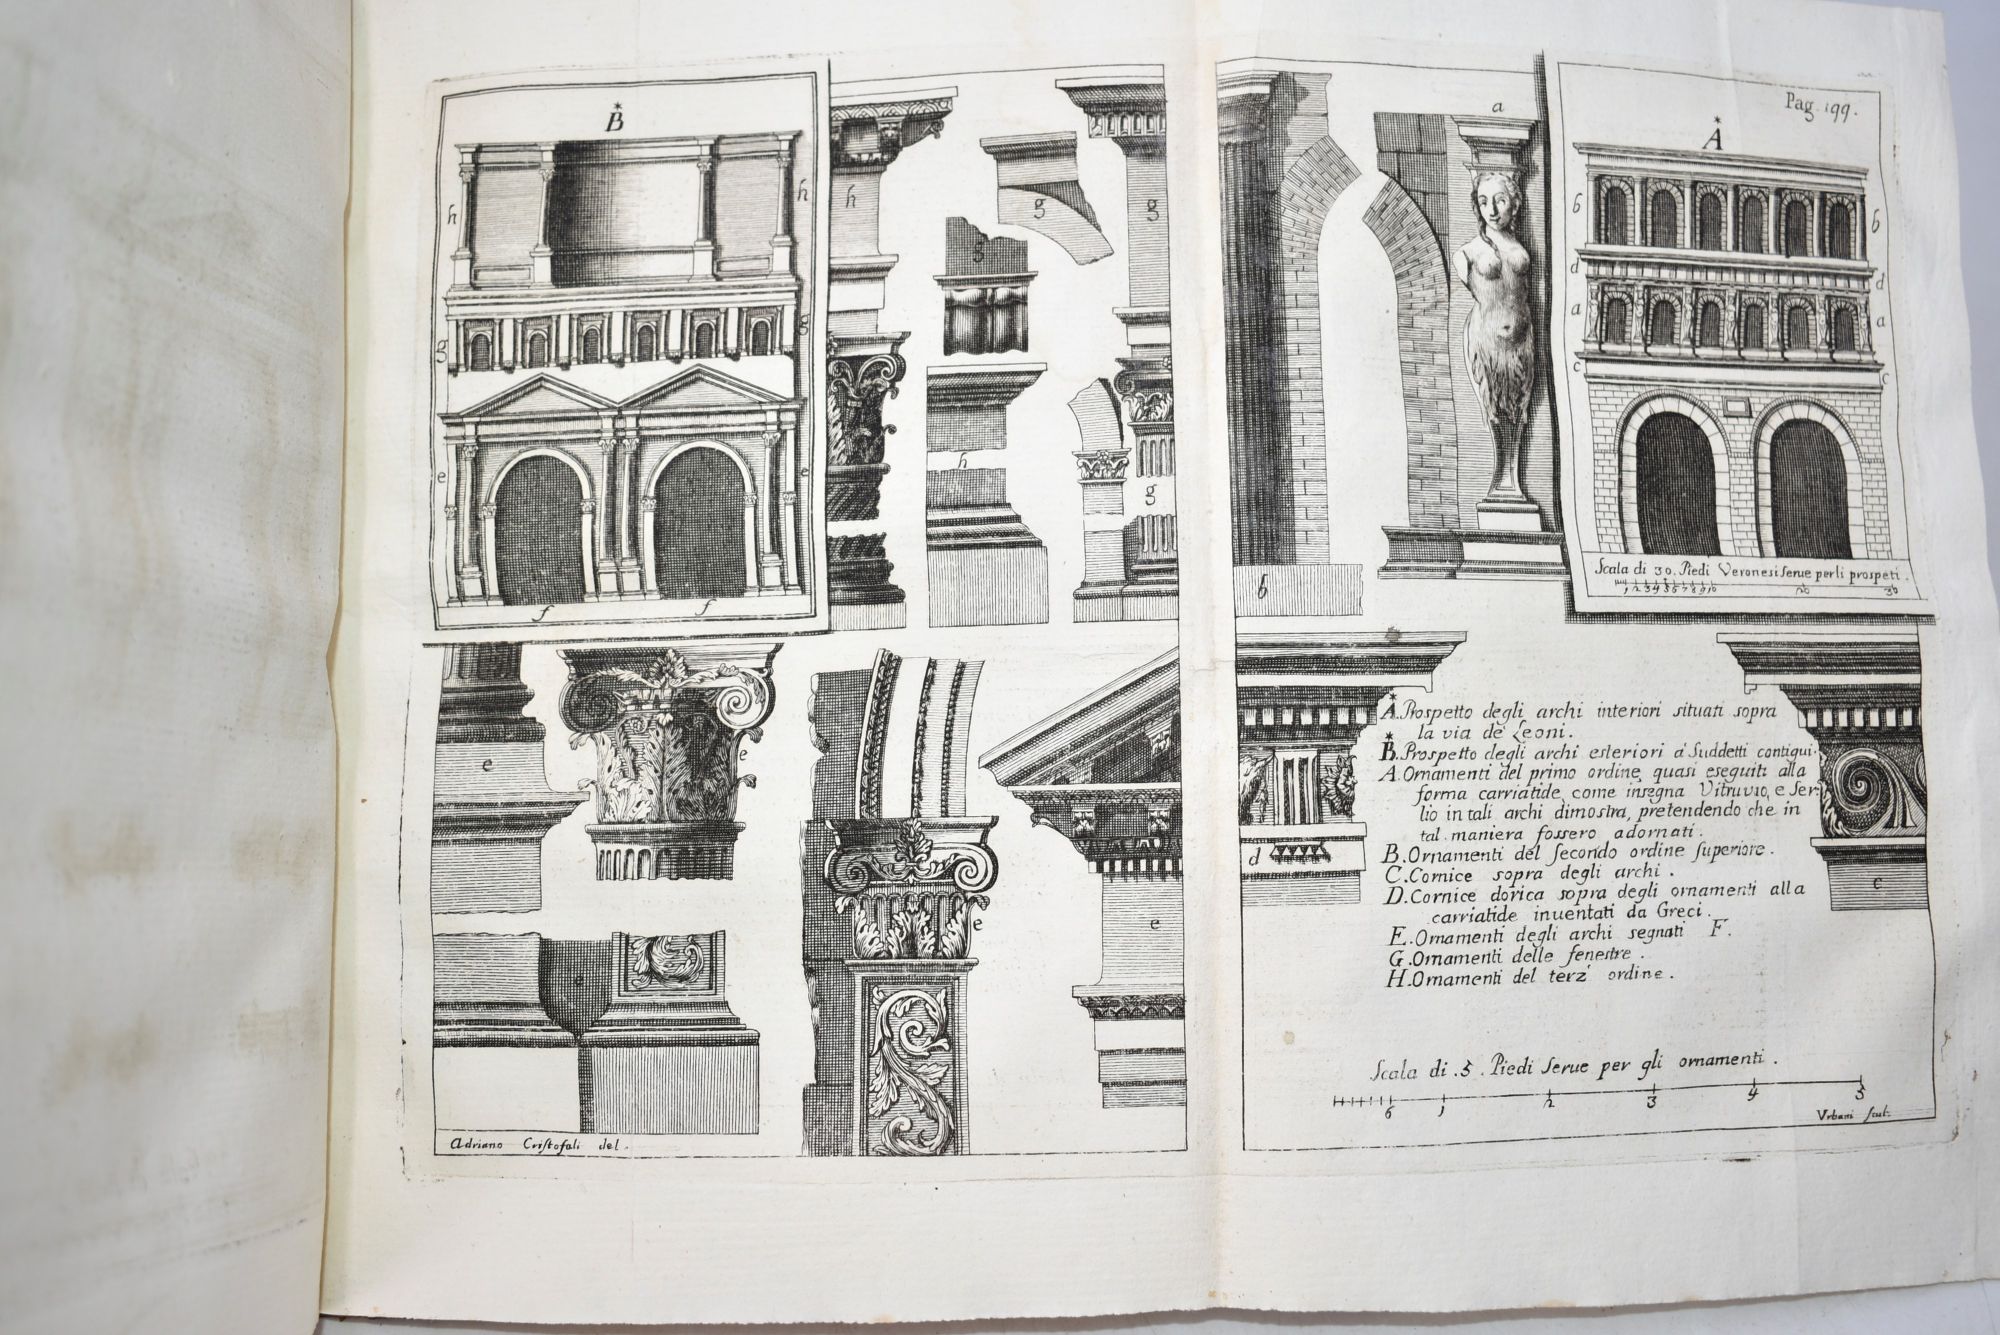 Pag. 199.
B
A
h
h
g
g
e
e
f
f
h
g
g
g
h
g
a
b
b
b
d
d
a
a
c
c
Scala di 30. Piedi Veronesi serue per li prospeti.
1 2 3 4 5 6 7 8 9 10 20 30
e
e
e
e
e
d
c
A. Prospetto degli archi interiori situati sopra
la via de' Leoni.
B. Prospetto degli archi esteriori a' Suddetti contigui.
A. Ornamenti del primo ordine, quasi eseguiti alla
forma carriatide, come insegna Vitruvio, e Ser:
lio in tali archi dimostra, pretendendo che in
tal maniera fossero adornati.
B. Ornamenti del secondo ordine superiore.
C. Cornice sopra degli archi.
D. Cornice dorica sopra degli ornamenti alla
carriatide inuentati da Greci.
E. Ornamenti degli archi segnati F.
G. Ornamenti delle fenestre.
H. Ornamenti del terz' ordine.
Scala di .5. Piedi serue per gli ornamenti.
6 1 2 3 4 5
Adriano Cristofali del.
Vrbani scul: